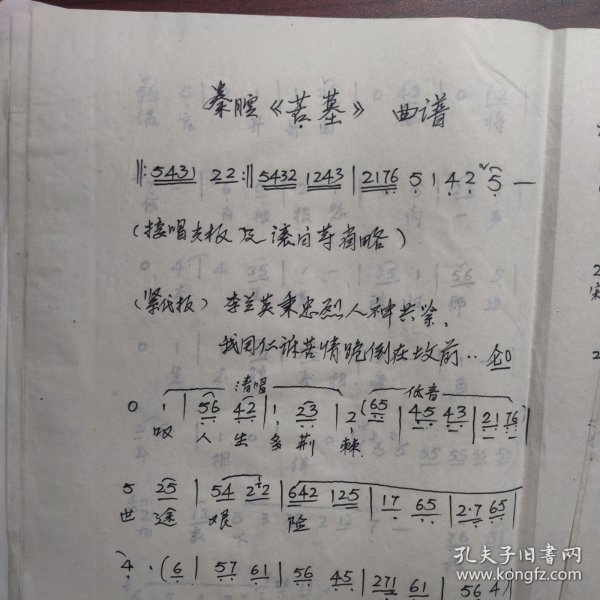 秦腔《苦墓》 曲谱
‖: 5431 22 :‖ 5432 1243 | 2176 5 | 4 2 5 —
(接唱夹板及滚白等省略)
(紧代板) 李兰英秉忠烈人神共
我同仁诉苦情跪倒在坟前‥
清唱 低音
0 1 | 56 42 | 1 23 | 2 (65 | 45 43 | 21 76) |
叹 人 生 多 荆 棘
5 25 | 54 2 2 | 642 125 | 17 65 | 2·7 65 |
世 途 艰 险
4 · (6 | 57 61 | 56 45 | 271 61 | 56 4
孔夫子旧书网
www.kongfz.com